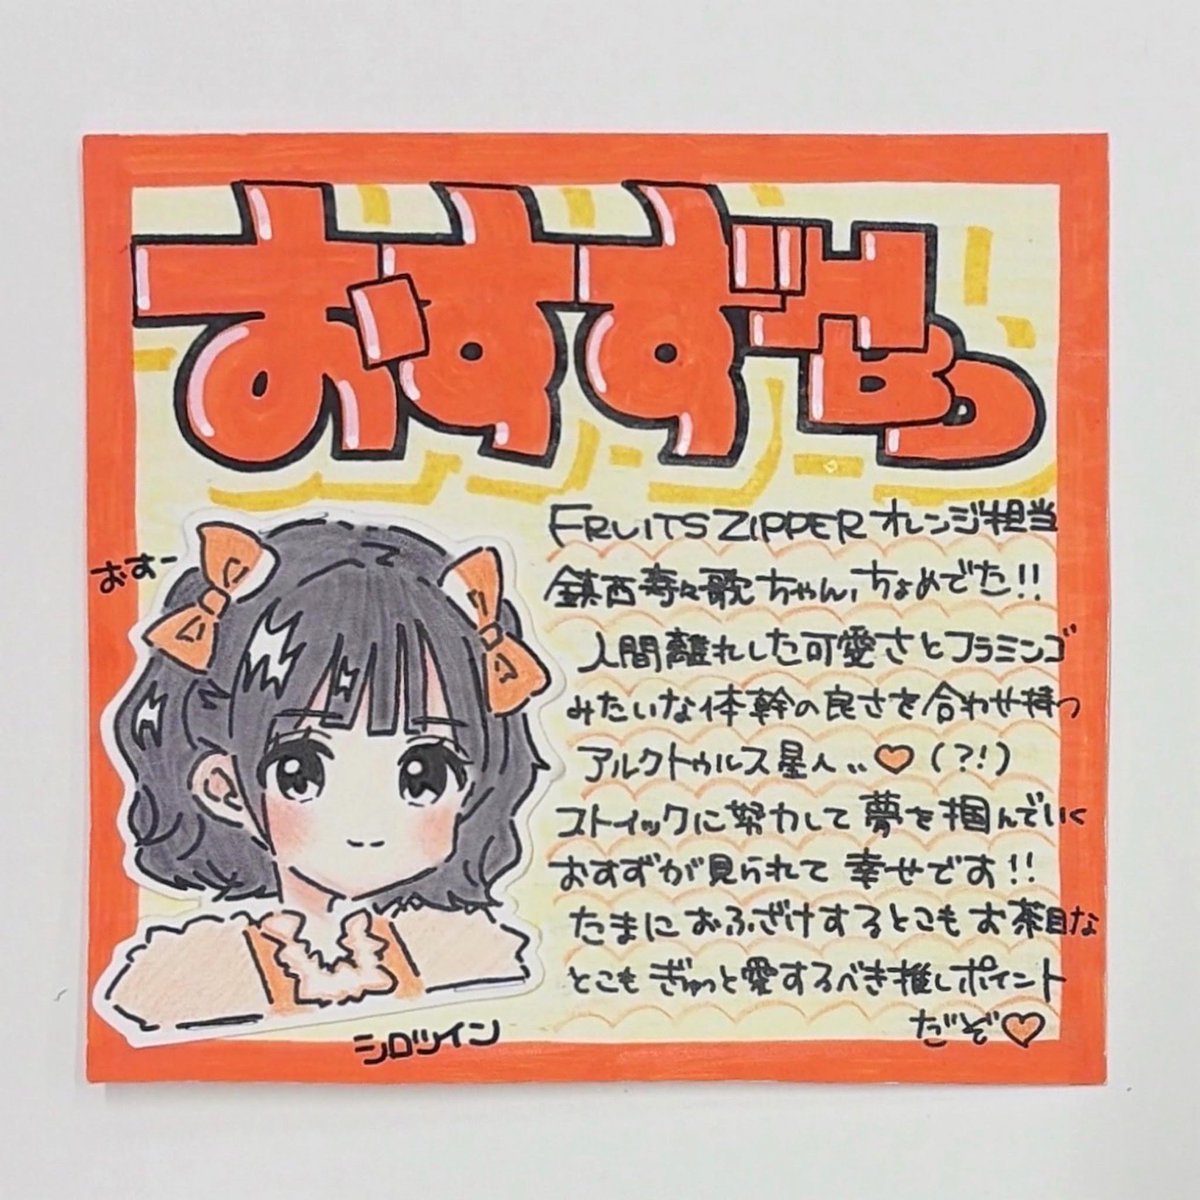 おすずせっ
おすー
FRUITS ZIPPER オレンジ担当
鎮西寿々歌ちゃん、ちょめでた!!
人間離れした可愛さとフラミンゴ
みたいな体幹の良さを合わせ持つ
アルクトゥルス星人‥♡(?!)
ストイックに努力して夢を掴んでいく
おすずが見られて幸せです!!
たまにおふざけするとこもお茶目な
とこもぎゅっと愛するべき推しポイント
だぞ♡
シロツイン